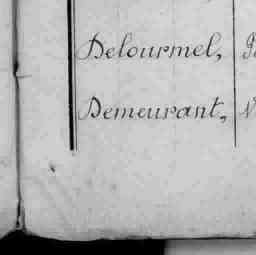 Delourmel,
Demeurant,